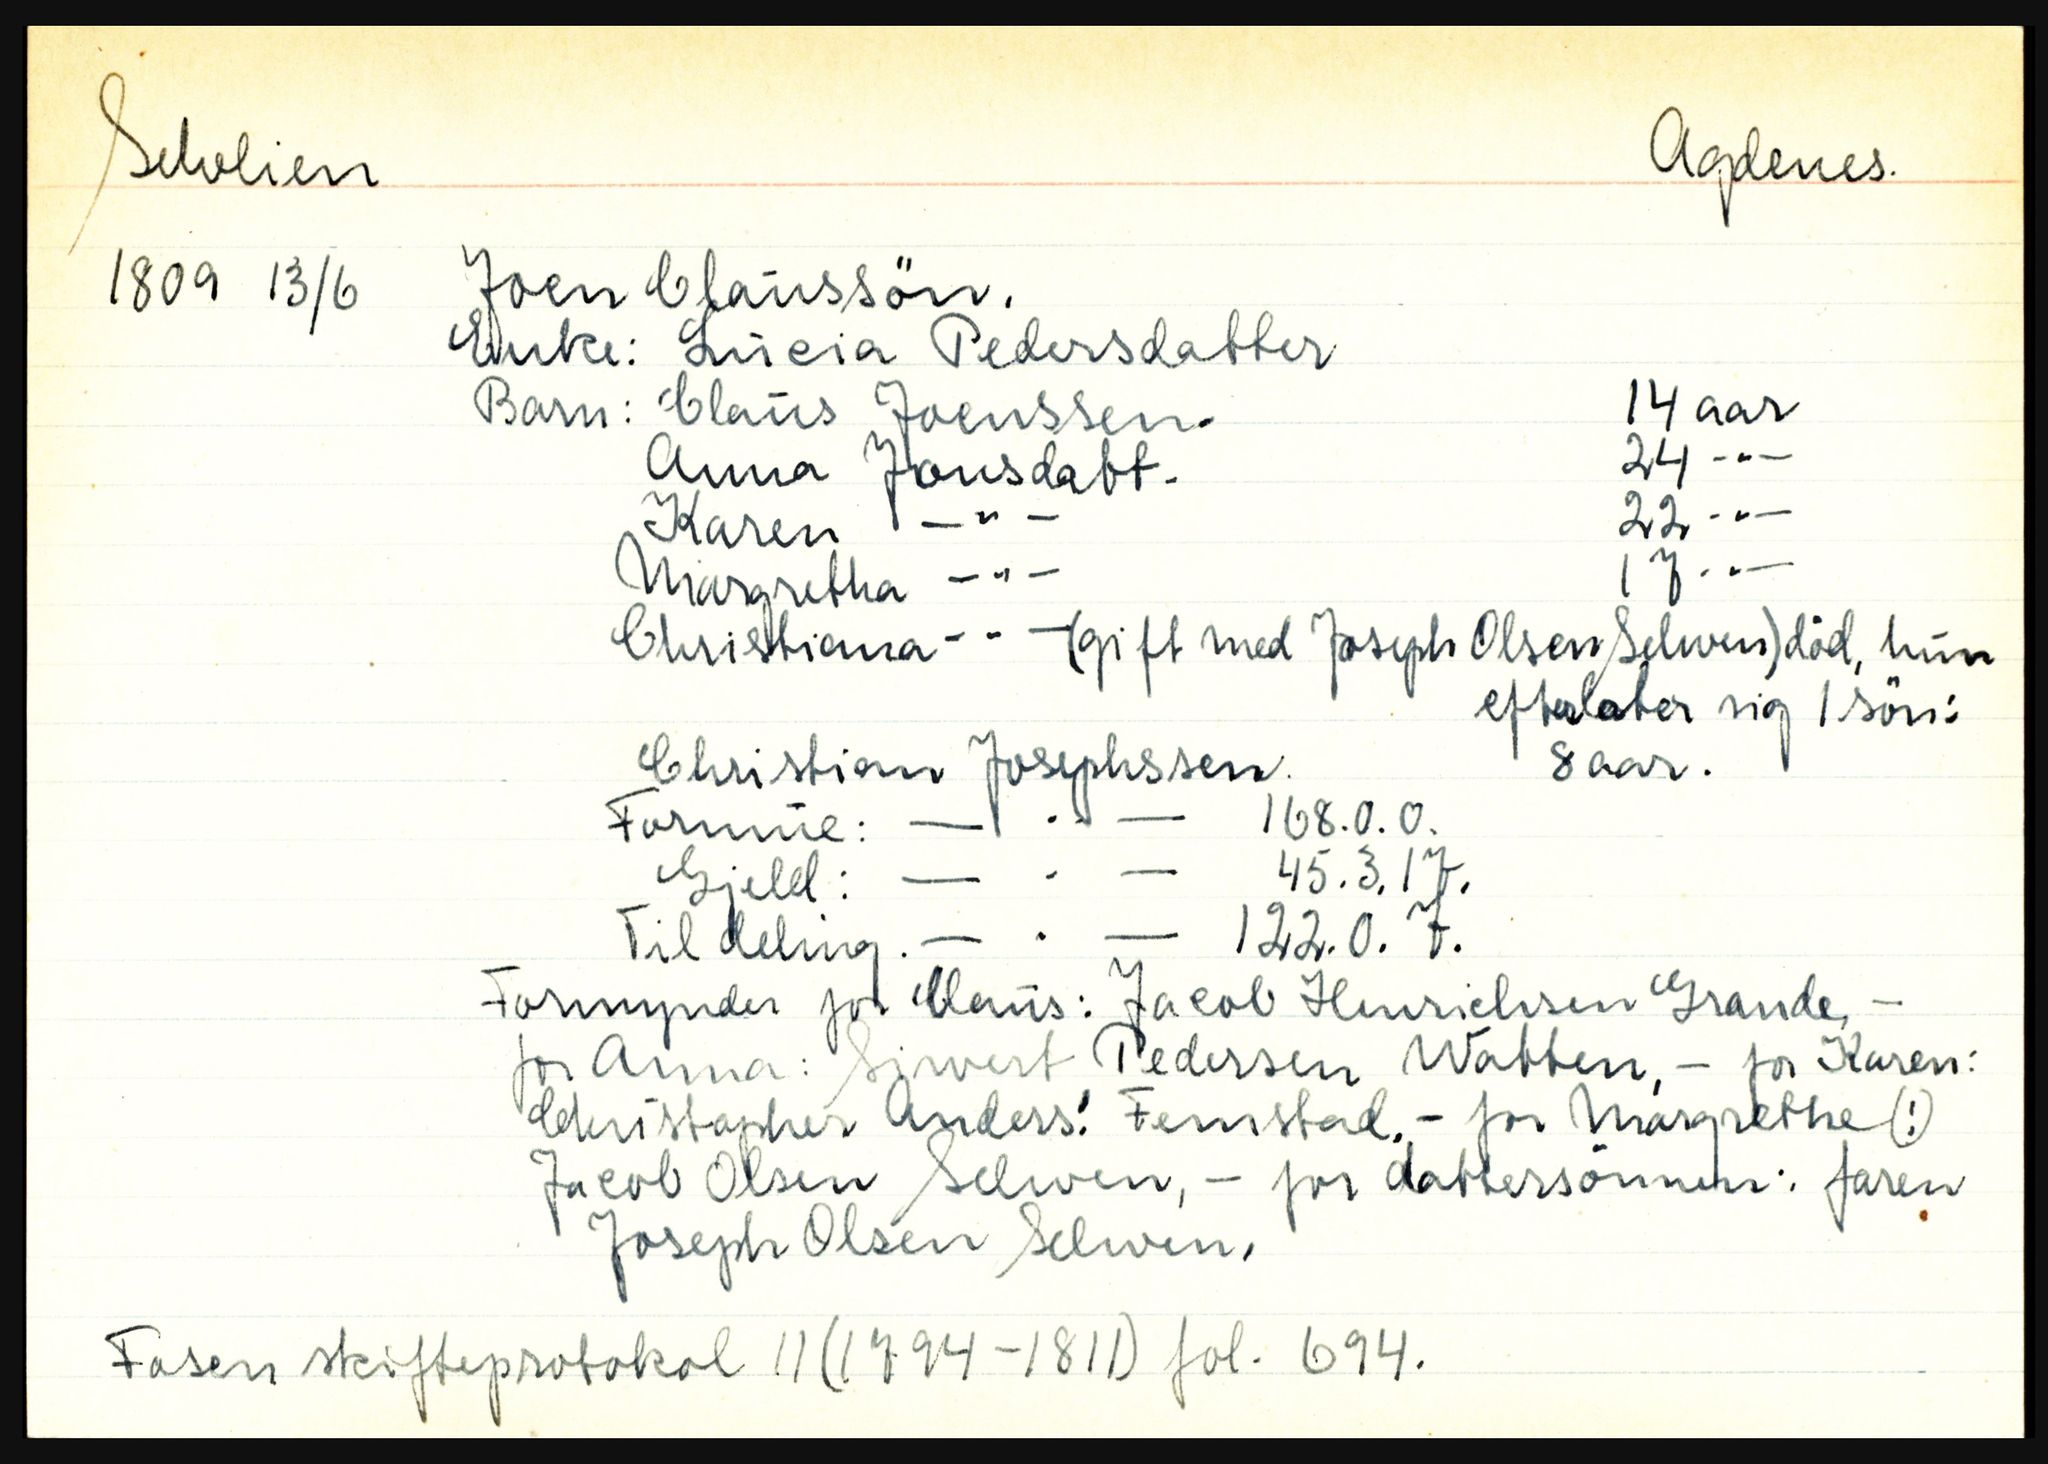 Selvlien Agdenes.
1809 13/6 Joen Claussön.
Enke: Lucia Pedersdatter
Barn: Claus Joenssen. 14 aar
Anna Jonsdatt. 24 -"-
Karen -"- 22 -"-
Margretha -"- 17 -"-
Christiana -"- (gift med Joseph Olsen Selwen) död, hun
efterlater sig 1 sön:
Christian Josephssen. 8 aar.
Formue: — " — 168.0.0.
Gjeld: — " — 45.3.17.
Til deling. — " — 122.0.7.
Formynder for Claus: Jacob Henrichsen Grande, -
for Anna: Sivert Pedersen Watten, - for Karen:
Christopher Anders! Femstad, - for Margrethe (!)
Jacob Olsen Selwen, - for dattersönnen: faren
Joseph Olsen Selwen.
Fosen skifteprotokol 11 (1794-1811) fol. 694.